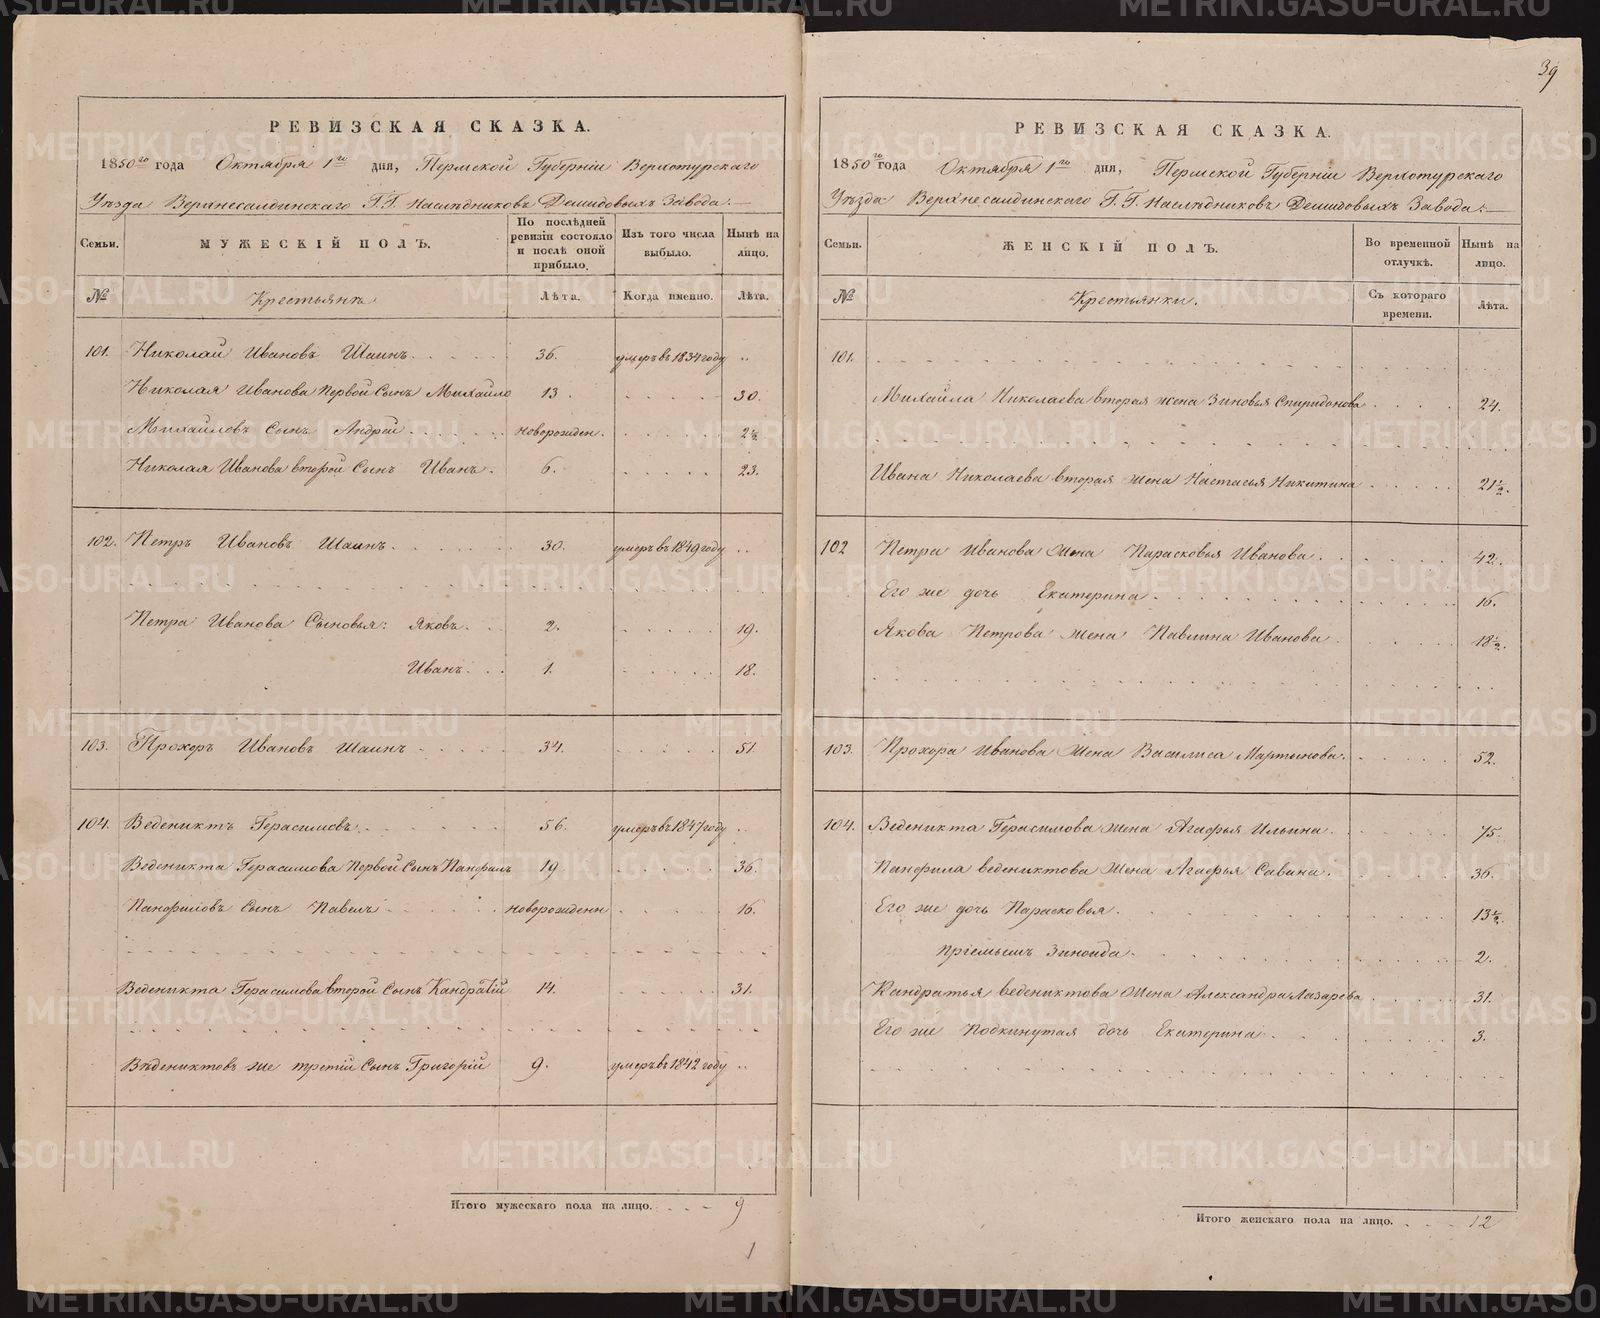 39
РЕВИЗСКАЯ СКАЗКА.
1850го года Октября 1го дня, Пермской Губернiи Верхотурскаго
Уѣзда Верхнесалдинскаго Г.Г. Наслѣдниковъ Демидовыхъ Завода.
Семьи. МУЖЕСКIЙ ПОЛЪ. По послѣдней ревизiи состояло и послѣ оной прибыло. Изъ того числа выбыло. Нынѣ на лицо.
№ Крестьянъ Лѣта. Когда именно. Лѣта.
101. Николай Ивановъ Шаинъ 36. умеръ въ 1834 году
Николая Иванова Первой Сынъ Михайло 13. 30.
Михайловъ Сынъ Андрей новорожден. 2½
Николая Иванова второй Сынъ Иванъ. 6. 23.
102. Петръ Ивановъ Шаинъ. 30. умеръ въ 1849 году
Петра Иванова Сыновья: Яковъ. 2. 19.
Иванъ. 1. 18.
103. Прохоръ Ивановъ Шаинъ 34. 51
104. Веденихтъ Герасимовъ. 56. умеръ въ 1847 году
Веденикта Герасимова Первой Сынъ Панфилъ 19 36.
Панфиловъ Сынъ Павелъ новорожденн 16.
Веденикта Герасимова второй Сынъ Кандратiй 14. 31.
Вѣдениктовъ же третiй Сынъ Григорiй 9. умеръ въ 1842 году
Итого мужескаго пола на лицо. 9
1
РЕВИЗСКАЯ СКАЗКА.
1850го года Октября 1го дня, Пермской Губернiи Верхотурскаго
Уѣзда Верхнесалдинскаго Г.Г. Наслѣдниковъ Демидовыхъ Завода.
Семьи. ЖЕНСКIЙ ПОЛЪ. Во временной отлучкѣ. Нынѣ на лицо.
№ Крестьянки. Съ котораго времени. Лѣта.
101.
Михайла Николаева вторая жена Зиновья Спиридонова 24.
Ивана Николаева вторая жена Настасья Никитина 21½.
102 Петра Иванова жена Парасковья Иванова. 42.
Его же дочь Екатерина 16.
Якова Петрова жена Павлина Иванова 18½.
103. Прохора Иванова жена Василиса Мартынова. 52.
104. Веденикта Герасимова жена Агафья Ильина. 75.
Панфила ведениктова жена Агафья Савина. 36.
Его же дочь Парасковья. 13½.
прiемышъ Зиноида 2.
Кандратья ведениктова жена Александра Лазарева 31.
Его же Подкинутая дочь Екатерина 3.
Итого женскаго пола на лицо. 12
METRIKI.GASO-URAL.RU